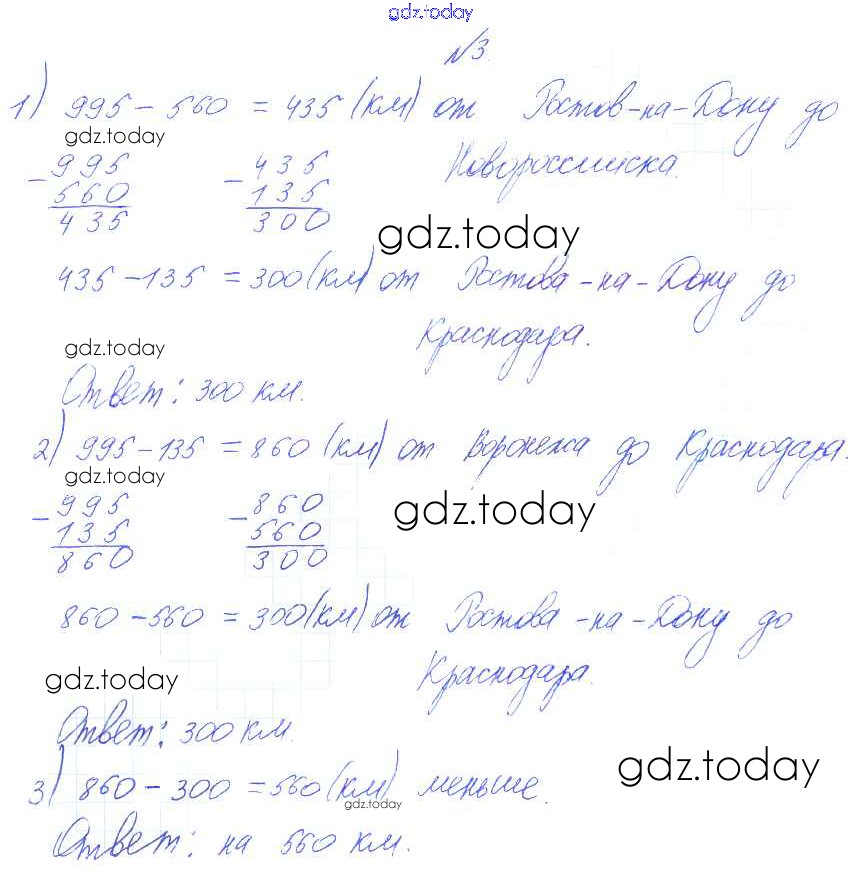 gdz.today
№3.
1) 995 - 560 = 435 (км) от Ростов-на-Дону до
gdz.today
Новороссийска.
- 995 - 435
560 135
435 300
gdz.today
435 - 135 = 300 (км) от Ростова-на-Дону до
Краснодара.
gdz.today
Ответ: 300 км.
2) 995 - 135 = 860 (км) от Воронежа до Краснодара.
gdz.today
- 995 - 860
135 560
860 300
gdz.today
860 - 560 = 300 (км) от Ростова-на-Дону до
Краснодара.
gdz.today
Ответ: 300 км.
gdz.today
3) 860 - 300 = 560 (км) меньше.
gdz.today
Ответ: на 560 км.